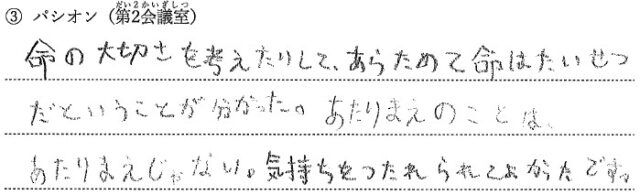 ③ パシオン（第2会議室）
だい2かいぎしつ
命の大切さを考えたりして、あらためて命はたいせつ
だということが分かった。あたりまえのことは、
あたりまえじゃない。気持ちをつたれられてよかったです。